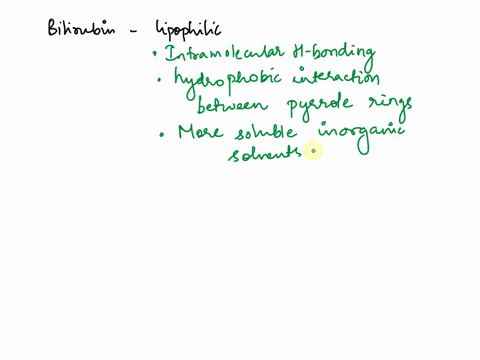 Bilirubin - lipophilic
• Intramolecular H-bonding
• hydrophobic interaction
between pyrrole rings
• More soluble inorganic
solvents